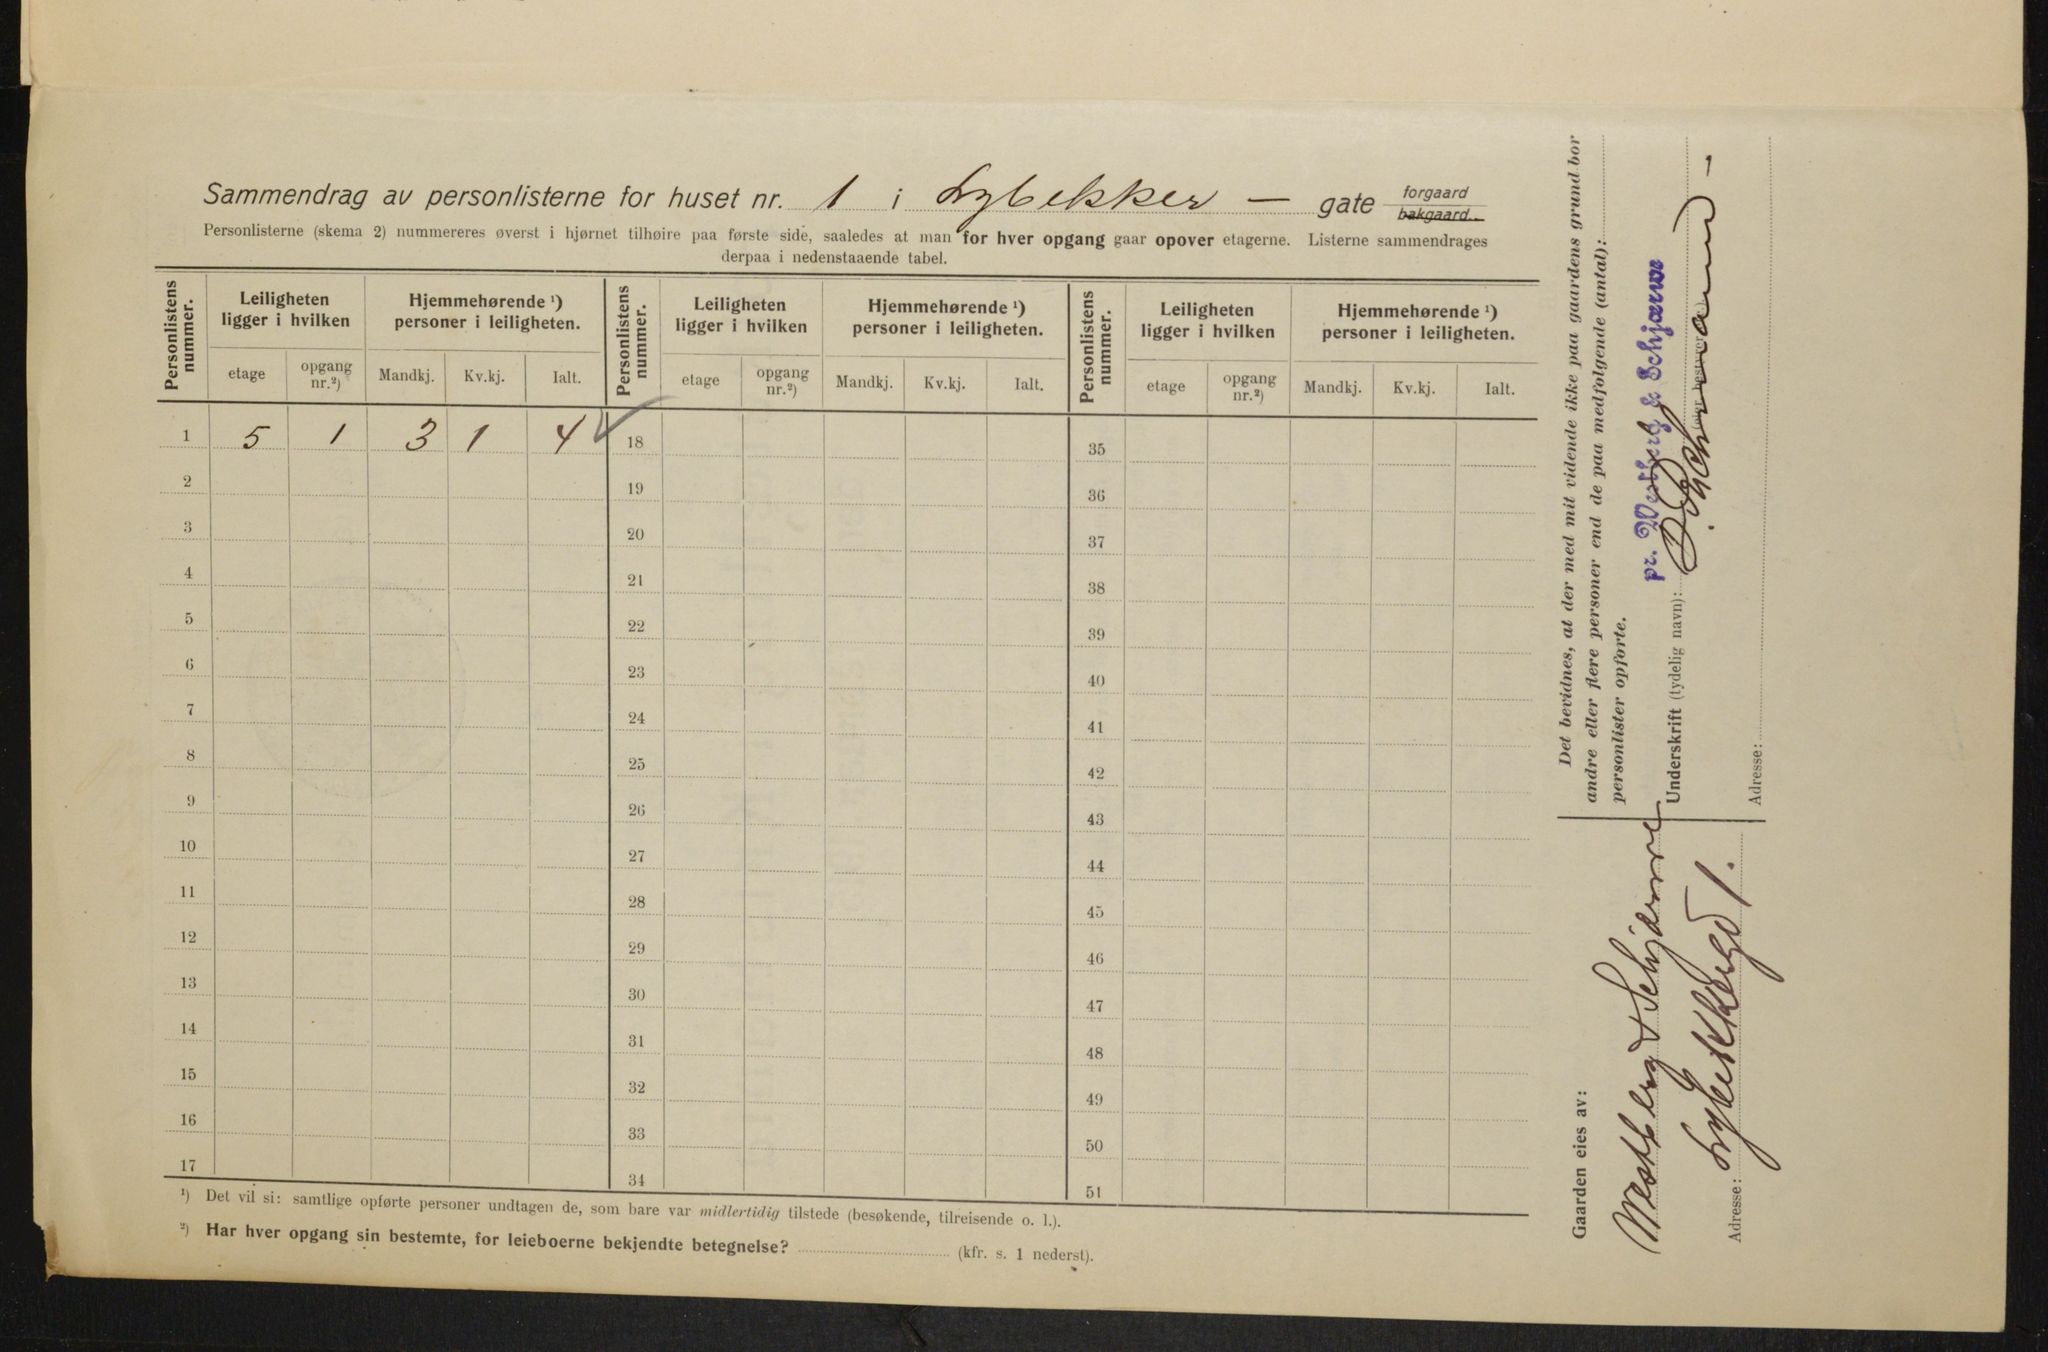 Sammendrag av personlisterne for huset nr. 1 i Lybekker – gate forgaard bakgaard.
Personlisterne (skema 2) nummereres øverst i hjørnet tilhøire paa første side, saaledes at man for hver opgang gaar opover etagerne. Listerne sammendrages
derpaa i nedenstaaende tabel.
Personlistens nummer. Leiligheten ligger i hvilken Hjemmehørende ¹) personer i leiligheten. Personlistens nummer. Leiligheten ligger i hvilken Hjemmehørende ¹) personer i leiligheten. Personlistens nummer. Leiligheten ligger i hvilken Hjemmehørende ¹) personer i leiligheten.
etage opgang nr.²) Mandkj. Kv.kj. Ialt. etage opgang nr.²) Mandkj. Kv.kj. Ialt. etage opgang nr.²) Mandkj. Kv.kj. Ialt.
1 5 1 3 1 4 18 35
2 19 36
3 20 37
4 21 38
5 22 39
6 23 40
7 24 41
8 25 42
9 26 43
10 27 44
11 28 45
12 29 46
13 30 47
14 31 48
15 32 49
16 33 50
17 34 51
¹) Det vil si: samtlige opførte personer undtagen de, som bare var midlertidig tilstede (besøkende, tilreisende o. l.).
²) Har hver opgang sin bestemte, for leieboerne bekjendte betegnelse? (kfr. s. 1 nederst).
Gaarden eies av:
Westberg & Schjærve
Adresse: Lybekkergd 1.
Det bevidnes, at der med mit vidende ikke paa gaardens grund bor
andre eller flere personer end de paa medfølgende (antal):
personlister opførte.
pr. Westberg & Schjærve
Underskrift (tydelig navn):
(eier, bestyrer)
Adresse: